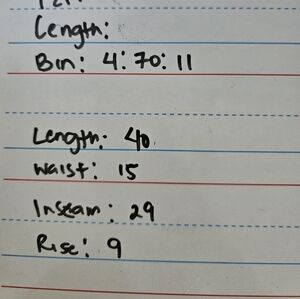 Length:
Bin: 4:70:11
Length: 40
Waist: 15
Inseam: 29
Rise: 9